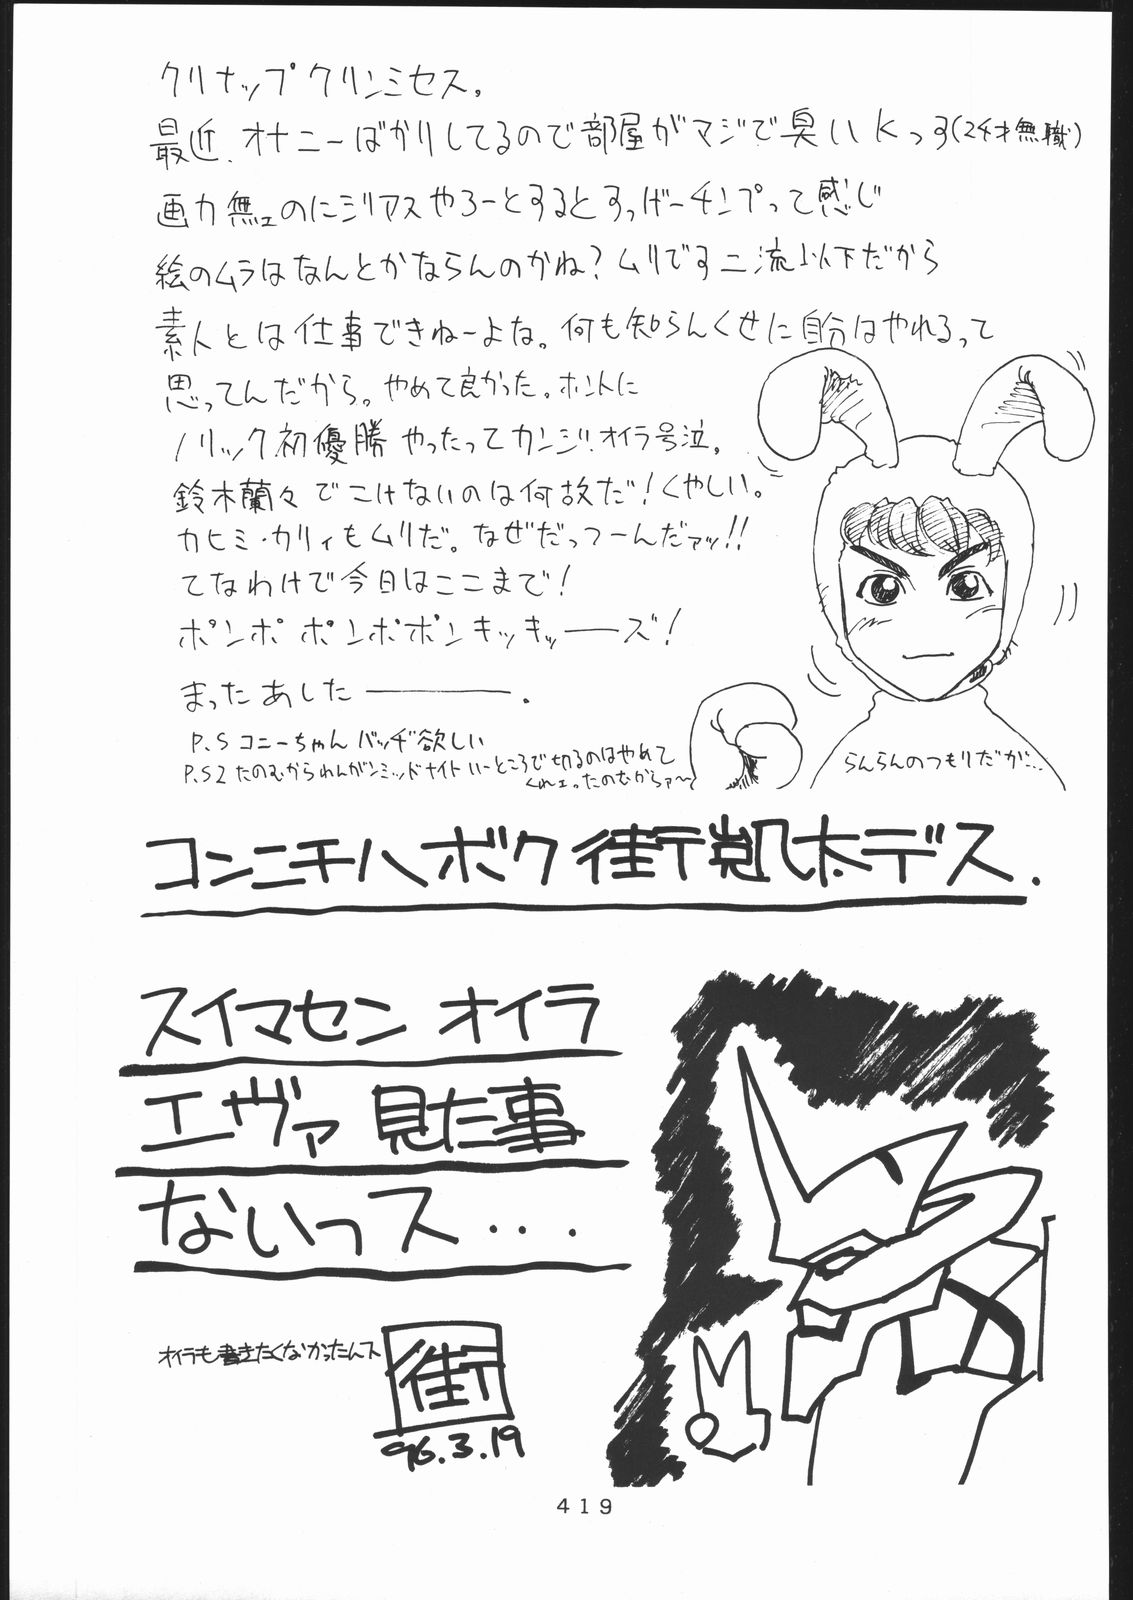 クリナップクリンミセス。
最近、オナニーばかりしてるので部屋がマジで臭いKっす(24才無職)
画力無ェのにジアスやろーとするとすっげーチンプって感じ
絵のムラはなんとかならんのかね?ムリです二流以下だから
素人とは仕事できねーよな。何も知らんくせに自分はやれるって
思ってんだから。やめて良かった。ホントに
ノリック初優勝やったってカンジ。オイラ号泣。
鈴木蘭々でこけないのは何故だ!くやしい。
カヒミ・カリィもムリだ。なぜだっつーんだァッ!!
てなわけで今日はここまで!
ポンポ ポンポポンキッキッーーズ!
まったあしたーーー.
P.S コニーちゃんバッヂ欲しい
P.S2 たのむからわんがンミッドナイトいーところで切るのはやめて
くれェったのむからァ〜
らんらんのつもりだが...
コンニチハボク街凱太デス.
スイマセン オイラ
エヴァ見た事
ないっス...
オイラも書きたくなかったんス
街
96.3.19
419